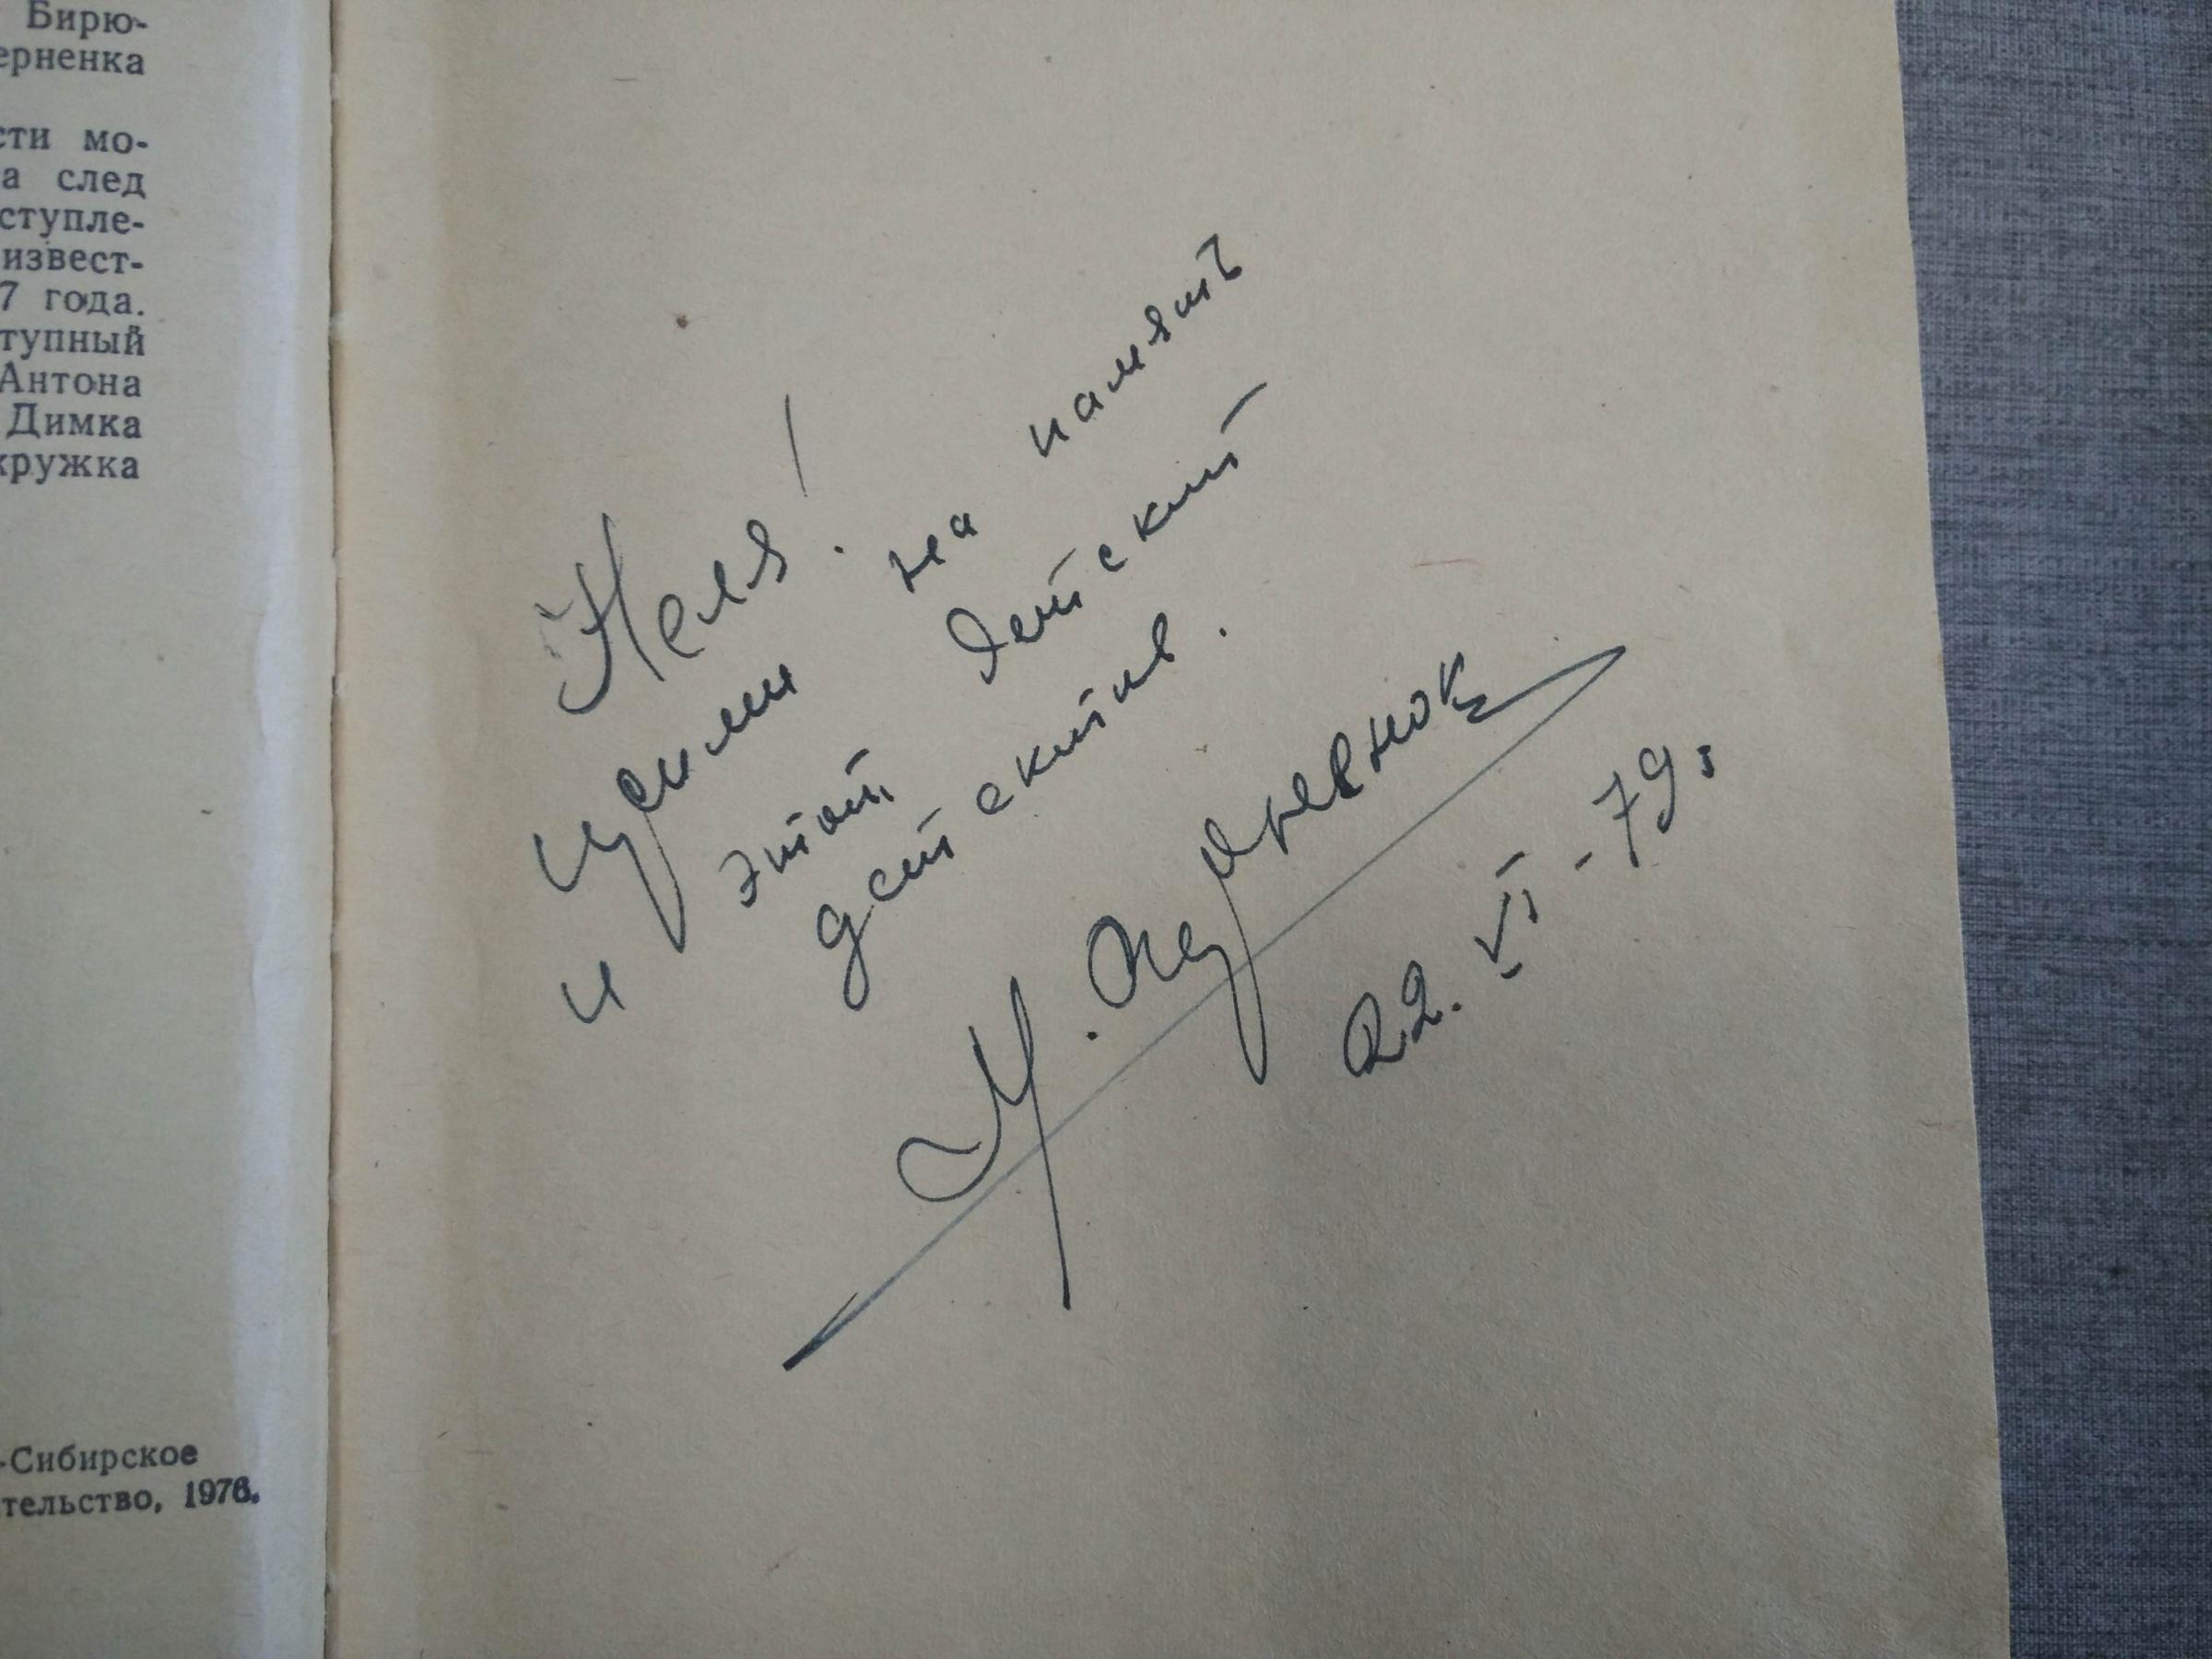 Бирю-
ерненка
сти мо-
а след
ступле-
извест-
7 года.
тупный
Антона
Димка
кружка
-Сибирское
тельство, 1976.
Неля!
Прими на память
и этот детский
детектив.
М.
22.VI-79г